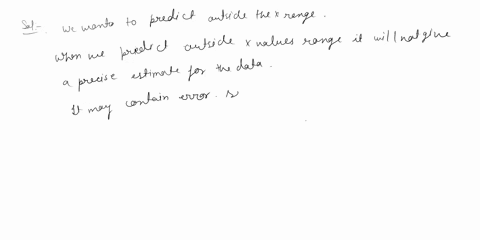 Sol:- we wants to predict outside the x range.
when we predict outside x values range it will not give
a precise estimate for the data.
It may contain error. s